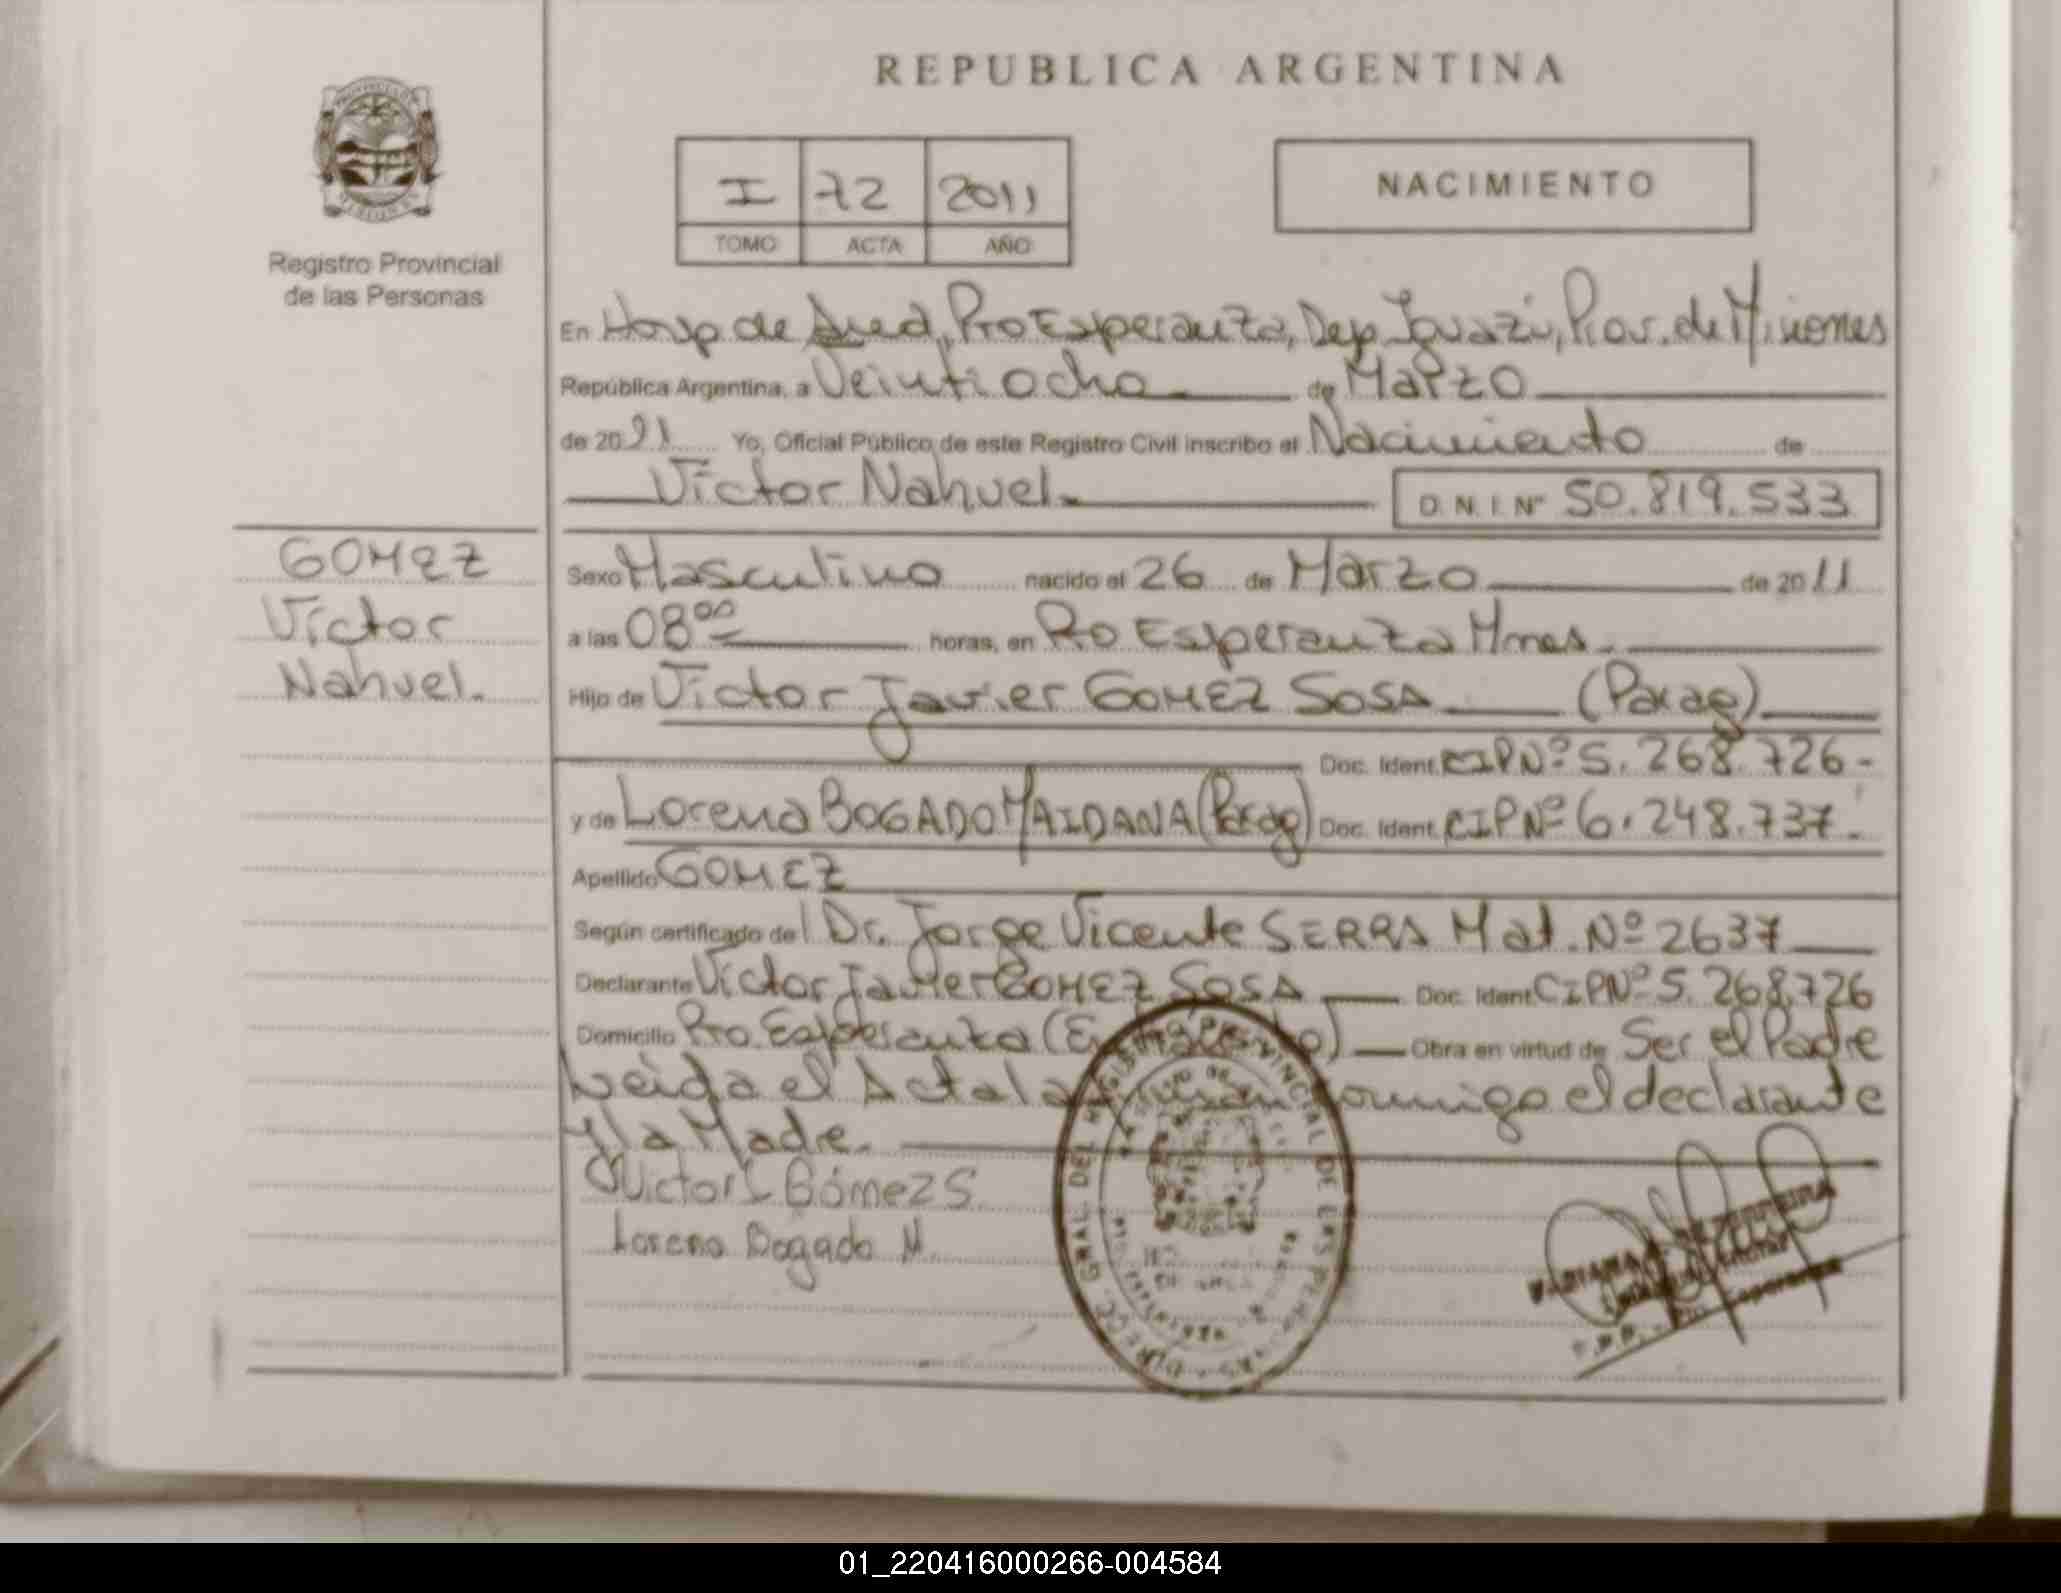 REPUBLICA ARGENTINA
I 72 2011
TOMO ACTA AÑO
NACIMIENTO
Registro Provincial
de las Personas
En Hosp de Area, Pto Esperanza, Dep. Iguazú, Prov. de Misiones
República Argentina, a Veintiocho de Marzo
de 2011 Yo, Oficial Público de este Registro Civil inscribo el Nacimiento de
Víctor Nahuel.
D.N.I. Nº 50.819.533
GOMEZ
Víctor
Nahuel.
Sexo Masculino nacido el 26 de Marzo de 2011
a las 08⁰⁰ horas, en Pto Esperanza Mnes.
Hijo de Víctor Javier GOMEZ SOSA (Parag)
Doc. Ident. CIPNº 5.268.726-
y de Lorena BOGADO MAIDANA (Parag) Doc. Ident. CIPNº 6.248.737.
Apellido GOMEZ
Según certificado del Dr. Jorge Vicente SERRA Mat. Nº 2637
Declarante Víctor Javier GOMEZ SOSA Doc. Ident. CIPNº 5.268.726
Domicilio Pto. Esperanza Obra en virtud de Ser el Padre
Leída el Acta la conmigo el declarante
y la Madre.
Victor J. Gómez S.
Lorena Bogado M.
01_220416000266-004584